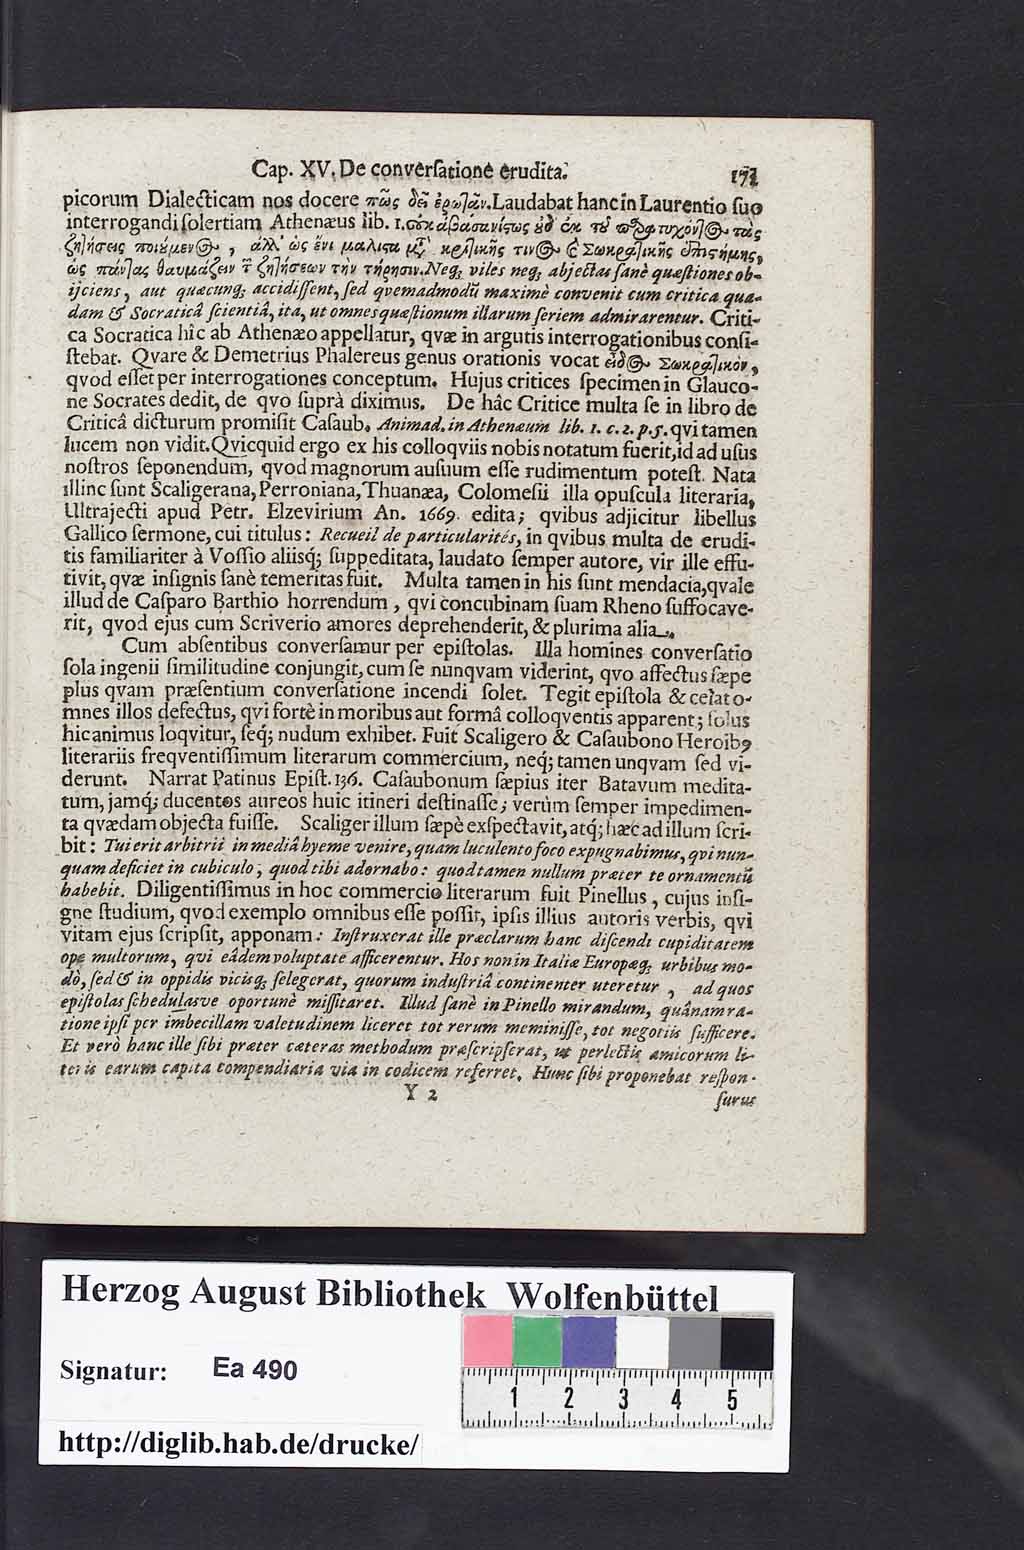 Cap. XV. De converſatione erudita.
picorum Dialecticam nos docere πῶς δεῖ ἐρωτᾶν. Laudabat hanc in Laurentio ſuo
interrogandi ſolertiam Athenæus lib. 1. οὐκ ἀβασανίϛως ἐδ' ἐκ τȣ͂ παρατυχόντ@ τὰς
ζητήσεις ποιȣ́μεν@, ἀλλ' ὡς ἔνι μάλιϛα μετὰ κριτικῆς τιν@ & Σωκρατικῆς ἐπιϛήμης,
ὡς πάντας θαυμάζειν τῶν ζητήσεων τὴν τήρησιν. Neq; viles neq; abjectas ſanè quæſtiones ob-
ijciens, aut quæcunq; accidiſſent, ſed qvemadmodū maximè convenit cum critica qua-
dam & Socraticâ ſcientiâ, ita, ut omnes quæſtionum illarum ſeriem admirarentur. Criti-
ca Socratica hîc ab Athenæo appellatur, qvæ in argutis interrogationibus conſi-
ſtebat. Qvare & Demetrius Phalereus genus orationis vocat εἶδ@ Σωκρατικὸν,
qvod eſſet per interrogationes conceptum. Hujus critices ſpecimen in Glauco-
ne Socrates dedit, de qvo ſuprà diximus. De hâc Critice multa ſe in libro de
Criticâ dicturum promiſit Caſaub. Animad. in Athenæum lib. 1. c. 2. p. 5. qvi tamen
lucem non vidit. Qvicquid ergo ex his colloqviis nobis notatum fuerit, id ad uſus
noſtros ſeponendum, qvod magnorum auſuum eſſe rudimentum poteſt. Nata
illinc ſunt Scaligerana, Perroniana, Thuanæa, Colomeſii illa opuſcula literaria,
Ultrajecti apud Petr. Elzevirium An. 1669. edita; qvibus adjicitur libellus
Gallico ſermone, cui titulus: Recueil de particularités, in qvibus multa de erudi-
tis familiariter à Voſſio aliisq; ſuppeditata, laudato ſemper autore, vir ille effu-
tivit, qvæ inſignis ſanè temeritas fuit. Multa tamen in his ſunt mendacia, qvale
illud de Caſparo Barthio horrendum, qvi concubinam ſuam Rheno ſuffocave-
rit, qvod ejus cum Scriverio amores deprehenderit, & plurima alia.
Cum abſentibus converſamur per epiſtolas. Illa homines converſatio
ſola ingenii ſimilitudine conjungit, cum ſe nunqvam viderint, qvo affectus ſæpe
plus qvam præſentium converſatione incendi ſolet. Tegit epiſtola & celat o-
mnes illos defectus, qvi fortè in moribus aut formâ colloqventis apparent; ſolus
hic animus loqvitur, ſeq; nudum exhibet. Fuit Scaligero & Caſaubono Heroibꝰ
literariis freqventiſſimum literarum commercium, neq; tamen unqvam ſed vi-
derunt. Narrat Patinus Epiſt. 136. Caſaubonum ſæpius iter Batavum medita-
tum, jamq; ducentos aureos huic itineri deſtinaſſe; verùm ſemper impedimen-
ta qvædam objecta fuiſſe. Scaliger illum ſæpè exſpectavit, atq; hæc ad illum ſcri-
bit: Tui erit arbitrii in mediâ hyeme venire, quam luculento foco expugnabimus, qvi nun-
quam deficiet in cubiculo, quod tibi adornabo: quod tamen nullum præter te ornamentū
habebit. Diligentiſſimus in hoc commercio literarum fuit Pinellus, cujus inſi-
gne ſtudium, qvod exemplo omnibus eſſe poſſit, ipſis illius autoris verbis, qvi
vitam ejus ſcripſit, apponam: Inſtruxerat ille præclarum hanc diſcendi cupiditatem
ope multorum, qvi eâdem voluptate afficerentur. Hos non in Italiæ Europæq; urbibus mo-
dò, ſed & in oppidis vicisq; ſelegerat, quorum induſtriâ continenter uteretur, ad quos
epiſtolas ſchedulasve oportunè miſſitaret. Illud ſanè in Pinello mirandum, quânam ra-
tione ipſi per imbecillam valetudinem liceret tot rerum meminiſſe, tot negotiis ſufficere.
Et verò hanc ille ſibi præter cæteras methodum præſcripſerat, ut perlectis amicorum li-
teris earum capita compendiaria via in codicem referret. Hunc ſibi proponebat reſpon-
Y 2
ſurus
Herzog August Bibliothek Wolfenbüttel
Signatur: Ea 490
1 2 3 4 5
http://diglib.hab.de/drucke/